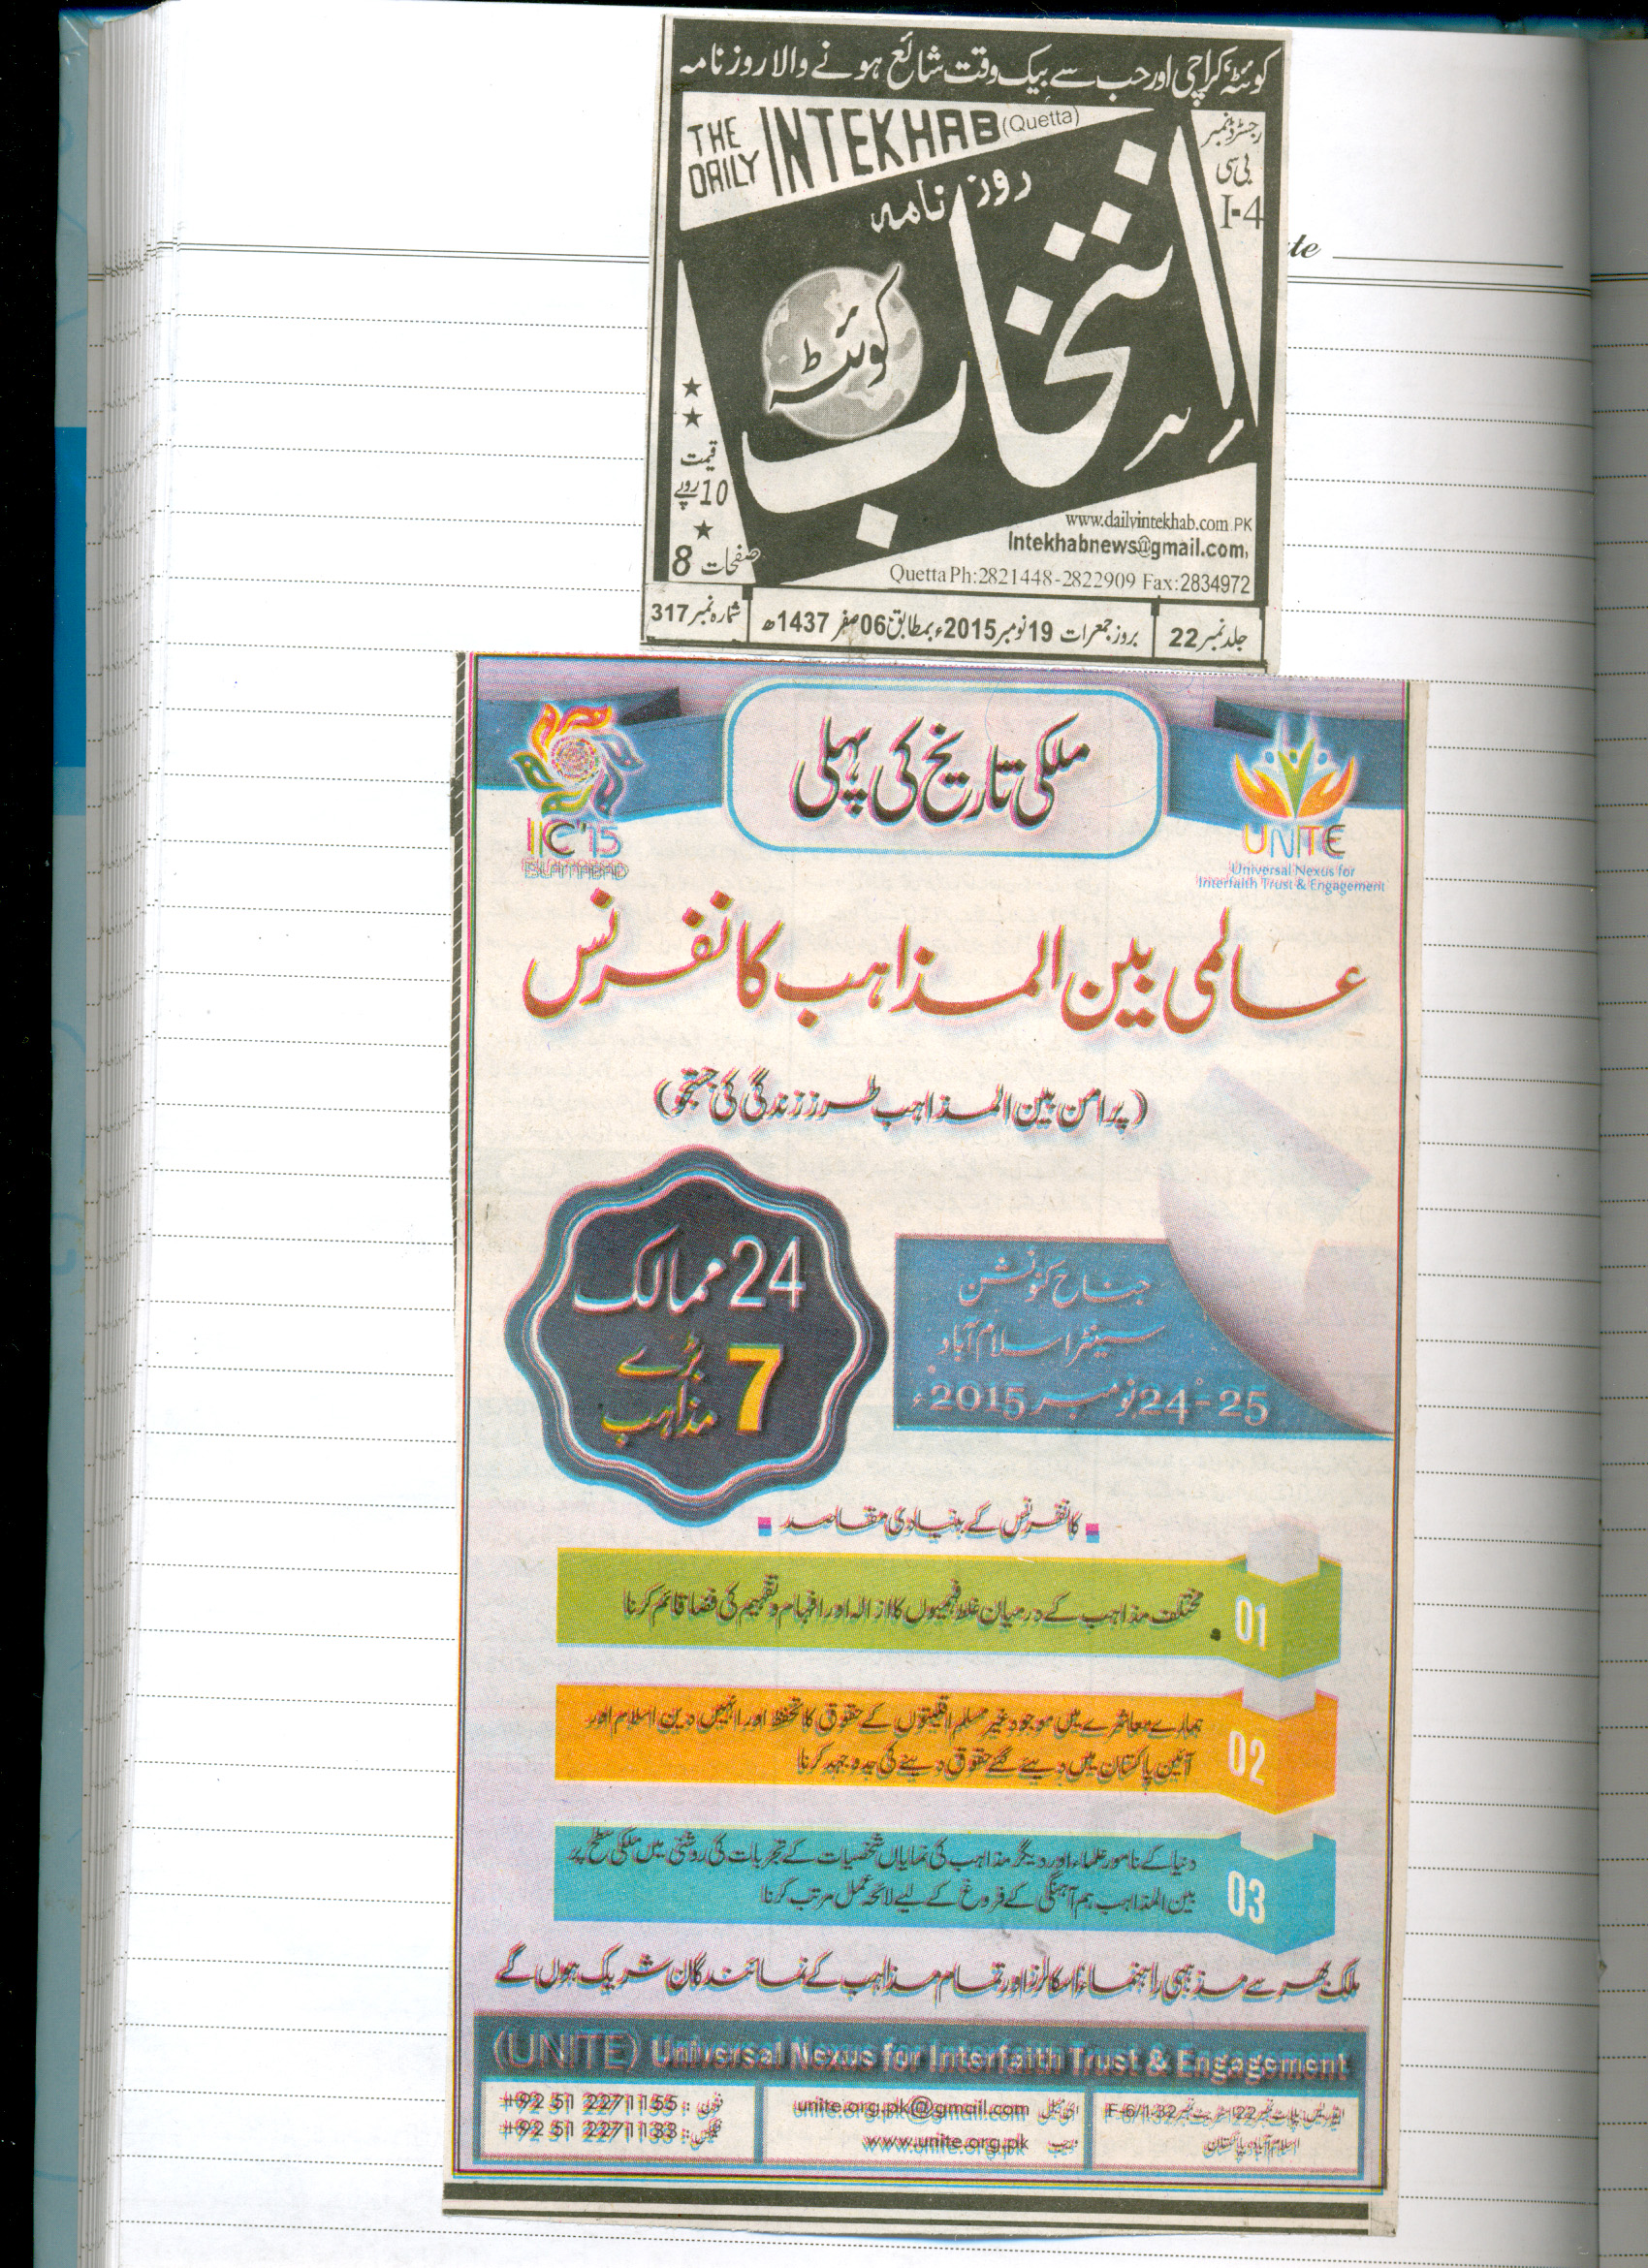 کوئٹہ، کراچی اور حب سے بیک وقت شائع ہونے والا روزنامہ
THE DAILY INTEKHAB (Quetta)
رجسٹرڈ نمبر
بی سی
I-4
روزنامہ
انتخاب
کوئٹہ
قیمت
10 روپے
صفحات 8
www.dailyintekhab.com.PK
Intekhabnews@gmail.com,
Quetta Ph:2821448-2822909 Fax:2834972
جلد نمبر 22
بروز جمعرات 19 نومبر 2015ء بمطابق 06 صفر 1437ھ
شمارہ نمبر 317
te
ملکی تاریخ کی پہلی
IIC'15
ISLAMABAD
UNITE
Universal Nexus for
Interfaith Trust & Engagement
عالمی بین المذاہب کانفرنس
(پرامن بین المذاہب طرز زندگی کی جستجو)
24 ممالک
7 بڑے مذاہب
جناح کنونشن
سینٹر اسلام آباد
24-25 نومبر 2015ء
کانفرنس کے بنیادی مقاصد
01
مختلف مذاہب کے درمیان غلط فہمیوں کا ازالہ اور افہام و تفہیم کی فضا قائم کرنا
02
ہمارے معاشرے میں موجود غیر مسلم اقلیتوں کے حقوق کا تحفظ اور انہیں دین اسلام اور
آئین پاکستان میں دیئے گئے حقوق دینے کی جدوجہد کرنا
03
دنیا کے نامور علماء اور دیگر مذاہب کی نمایاں شخصیات کے تجربات کی روشنی میں ملکی سطح پر
بین المذاہب ہم آہنگی کے فروغ کے لیے لائحہ عمل مرتب کرنا
ملک بھر سے مذہبی راہنماء، اسکالرز اور تمام مذاہب کے نمائندگان شریک ہوں گے
(UNITE) Universal Nexus for Interfaith Trust & Engagement
ایڈریس: پلاٹ نمبر 22 سٹریٹ نمبر 32 F-6/1
اسلام آباد، پاکستان
ای میل unite.org.pk@gmail.com
ویب www.unite.org.pk
فون: +92 51 2271155
فیکس: +92 51 2271133